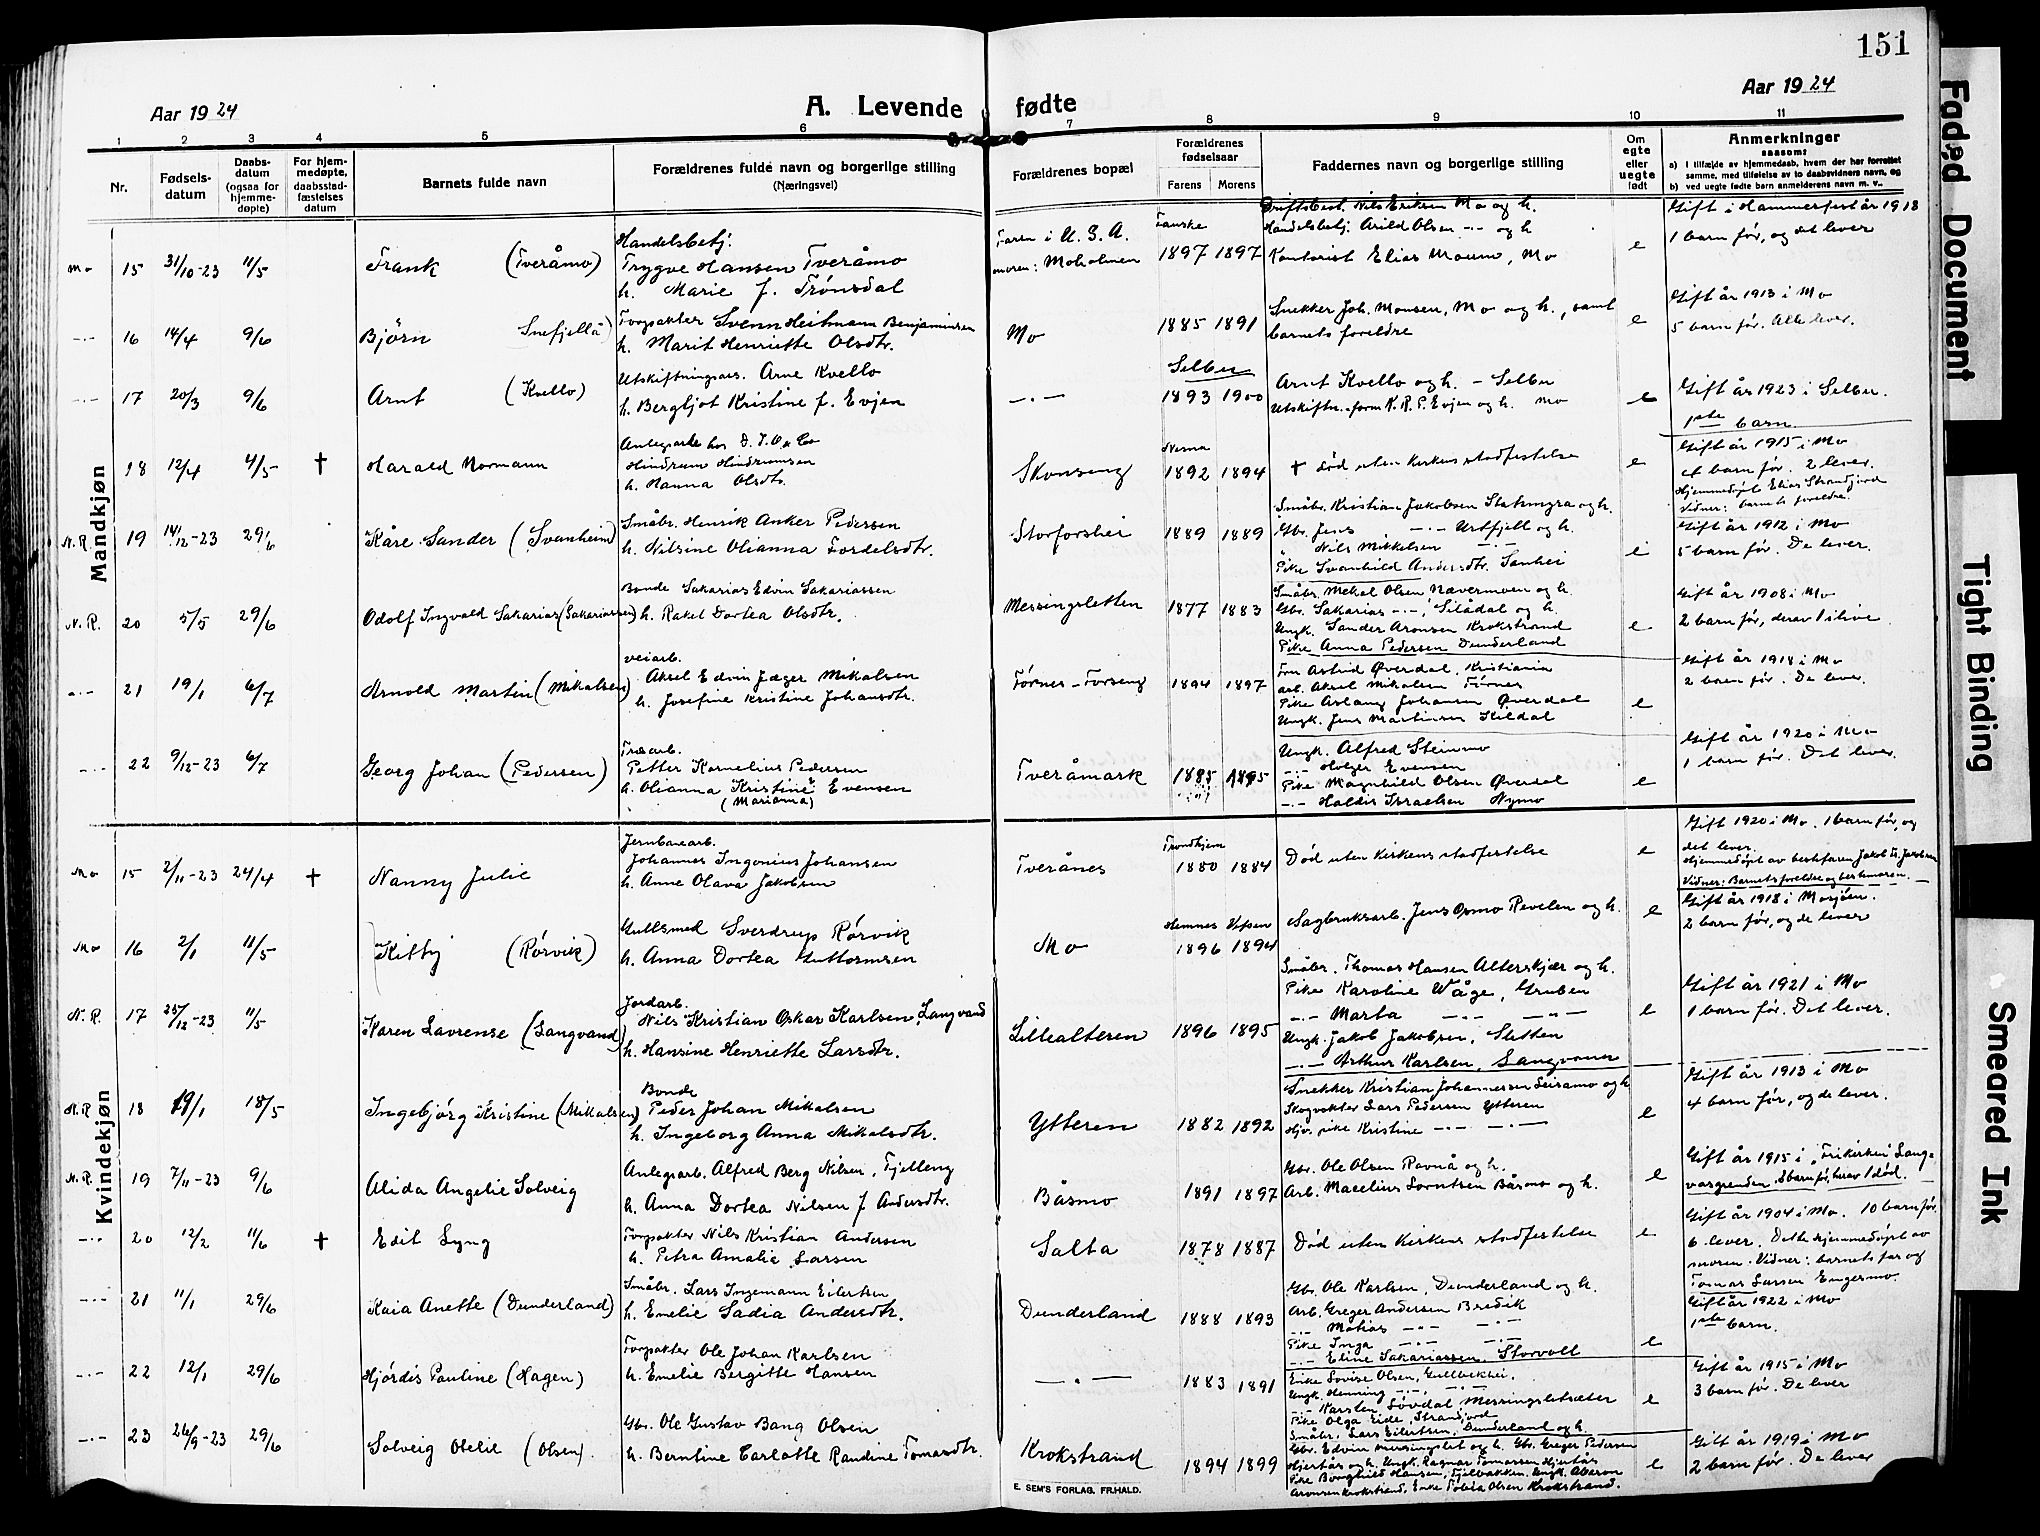 151
Aar 1924
A. Levende fødte
Aar 1924
1 2 3 4 5 6 7 8 9 10 11
Nr.
Fødsels-
datum
Daabs-
datum
(ogsaa for
hjemme-
døpte)
For hjem-
medøpte,
daabsstad-
fæstelses
datum
Barnets fulde navn
Forældrenes fulde navn og borgerlige stilling
(Næringsvei)
Forældrenes bopæl
Forældrenes
fødselsaar
Farens Morens
Faddernes navn og borgerlige stilling
Om
egte
eller
uegte
født
Anmerkninger
saasom:
a) I tilfælde av hjemmedaab, hvem der har forrettet
samme, med tilføielse av to daabsvidners navn, og
b) ved uegte fødte barn anmelderens navn m. v..
Mandkjøn
Mo 15 31/10-23 11/5 Frank (Tveråmo)
Handelsbetj.
Trygve Hansen Tveråmo
h. Marie f. Trønsdal
Faren i U.S.A.
moren: Moholmen
Fauske
1897 1897
Driftsbest. Nils Eriksen Mo og h.
Handelsbetj. Arild Olsen -"- og h
Kontorist Elias Moum, Mo
e
Gift i Hammerfest år 1918
1 barn før, og det lever
-"- 16 14/4 9/6 Bjørn Snefjellå)
Forpakter Svenn Heitmann Benjaminsen
h. Marit Henriette Olsdtr.
Mo
1885 1891
Snekker Joh. Monsen, Mo og h., samt
barnets foreldre
e
Gift år 1913 i Mo
5 barn før. Alle lever.
-"- 17 20/3 9/6 Arnt (Kvello)
Utskiftningsass. Arne Kvello
h. Bergljot Kristine f. Evjen
-"-
Selbu
1893 1900
Arnt Kvello og h. - Selbu
Utskiftn.form. K. R. P. Evjen og h. Mo
e
Gift år 1923 i Selbu.
1ste barn.
18 12/4 4/5 † Harald Normann
Anlegsarb. hos D. I. O. & Co
Hindrum Hindrumsen
h. Hanna Olsdtr.
Skonseng
Nesna
1892 1894
† død uten kirkens stadfestelse
e
Gift år 1915 i Mo
4 barn før. 2 lever.
Hjemmedøpt Elias Strandjord
Vidner: barnets foreldre.
N.R. 19 14/12-23 29/6 Kåre Sander (Svanheim)
Småbr. Henrik Anker Pedersen
h. Nilsine Olianna Fordelsdtr.
Storforshei
1889 1889
Småbr. Kristian Jakobsen Stakmyra og h.
Gbr. Jens -"- Urtfjell og h.
Nils Mikkelsen -"-
Pike Svanhild Andersdtr. Sanhei
e
Gift år 1912 i Mo
5 barn før. De lever.
N.R. 20 5/5 29/6 Odolf Ingvald Sakarias (Sakariassen)
Bonde Sakarias Edvin Sakariassen
h. Rakel Dortea Olsdtr.
Messingsletten
1877 1883
Småbr. Mekal Olsen Nævermoen og h.
Gbr. Sakarias -"-, Stlådal og h.
Ungk. Sander Aronsen Krokstrand
Pike Anna Pedersen Dunderland
e
Gift år 1908 i Mo
2 barn før, derav 1 ilive
-"- 21 19/1 6/7 Arnold Martin (Mikalsen)
veiarb.
Aksel Edvin Jæger Mikalsen
h. Josefine Kristine Johansdtr.
Førnes-Forseng
1894 1897
Fru Astrid Øverdal, Kristiania
arb. Aksel Mikalsen Førnes
Pike Aslaug Johansen Øverdal
Ungk. Jens Martinsen Kildal
e
Gift år 1918 i Mo
2 barn før. De lever.
-"- 22 9/12-23 6/7 Georg Johan (Pedersen)
Træarb.
Petter Kornelius Pedersen
h. Olianna Kristine Evensen
(Marianna)
Tveråmark
1885 1895
Ungk. Alfred Steinmo
-"- Holger Evensen
Pike Magnhild Olsen Øverdal
-"- Haldis Israelsen Nymo
e
Gift år 1920 i Mo
1 barn før. Det lever.
Kvindekjøn
Mo 15 2/11-23 24/4 † Nanny Julie
Jernbanearb.
Johannes Ingenius Johansen
h. Anne Olava Jakobsen
Tverånes
Trondhjem
1880 1884
Død uten kirkens stadfestelse
e
Gift 1920 i Mo. 1 barn før, og
det lever.
Hjemmedøpt av bestefaren Jakob Kr. Jakobsen
Vidner: Barnets foreldre og bestemoren.
Mo 16 2/1 11/5 Kitty (Rørvik)
Gullsmed Sverdrup Rørvik
h. Anna Dortea Guttormsen
Mo
Hemnes Vefsen
1896 1894
Sagbruksarb. Jens Osmo Revelen og h.
e
Gift år 1918 i Mosjøen.
2 barn før, og de lever
N.R. 17 25/12-23 11/5 Karen Lavrense (Langvand)
Jordarb.
Nils Kristian Oskar Karlsen, Langvand
h. Hansine Henriette Larsdtr.
Lillealteren
1896 1895
Småbr. Thomas Hansen Alterskjær og h.
Pike Karoline Våge, Gruben
-"- Marta -"- -"-
Ungk. Jakob Jakobsen, Sletten
-"- Arthur Karlsen, Langvannet
e
Gift år 1921 i Mo
1 barn før. Det lever.
N.R. 18 19/1 18/5 Ingebjørg Kristine (Mikalsen)
Bonde
Peder Johan Mikalsen
h. Ingeborg Anna Mikalsdtr.
Ytteren
1882 1892
Snekker Kristian Johannessen Leiramo og h
Skogvokter Lars Pedersen Ytteren
Hjv. pike Kristine -"- -"-
e
Gift år 1913 i Mo
4 barn før, og de lever.
N.R. 19 7/11-23 9/6 Alida Angelie Solveig
Anlegsarb. Alfred Berg Nilsen, Fjelleng
h. Anna Dortea Nilsen f. Andersdtr.
Båsmo
1891 1897
Gbr. Ole Olsen Ravnå og h.
Arb. Marelius Lorntsen Båsmo og h.
e
Gift år 1915 i "Frikirken" Lang-
vasgrenden. 8 barn før, hvav 1 død.
-"- 20 12/2 11/6 † Edit Lyng
Forpakter Nils Kristian Andersen
h. Petra Amalie Larsen
Salta
1878 1887
Død uten kirkens stadfestelse
e
Gift år 1904 i Mo. 10 barn før.
6 lever. Dette hjemmedøpt av
moren. Vidner: barnets far og
Tomas Larsen Engermo.
-"- 21 11/1 29/6 Kaia Anette (Dunderland)
Småbr. Lars Ingemann Eilertsen
h. Emelie Sadia Andersdtr.
Dunderland
1888 1893
Gbr. Ole Karlsen, Dunderland og h.
Arb. Greger Andersen Bredik
-"- Matias -"- -"-
Pike Inga -"- -"-
-"- Eline Sakariassen, Storvoll
e
Gift år 1922 i Mo
1ste barn.
-"- 22 12/1 29/6 Hjørdis Pauline (Hagen)
Forpakter Ole Johan Karlsen
h. Emelie Bergitte Hansen
-"-
1883 1891
Enke Lovise Olsen, Gullbekhei.
Ungk. Henning -"- -"-
-"- Karsten Løvdal, Messingsletræter
Pike Olga Eide, Strandjord
Småbr. Lars Eilertsen, Dunderland og h.
e
Gift år 1915 i Mo
3 barn før. De lever
-"- 23 26/9-23 29/6 Solveig Otelie (Olsen)
Gbr. Ole Gustav Bang Olsen
h. Berntine Carlotte Randine Tomasdtr.
Krokstrand
1894 1899
Gbr. Edvin Messingslet og h. Gbr. Greger Pedersen
Hjertås og h. Ungk. Ragnar Tomassen Hjertås
Pike Borghild Hansen, Fjelbakken. Ungk. Abaron
Aronsen Krokstrand. Enke Tolèta Olsen Krokstrand.
e
Gift år 1919 i Mo
2 barn før. De lever
E. SEM'S FORLAG, FR.HALD.
Faded Document
Tight Binding
Smeared Ink